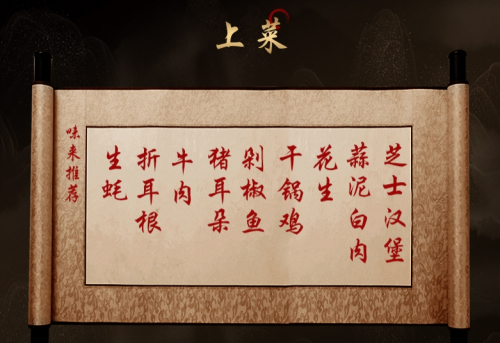 上菜
芝士汉堡
蒜泥白肉
花生
干锅鸡
剁椒鱼
猪耳朵
牛肉
折耳根
生蚝
味来推荐